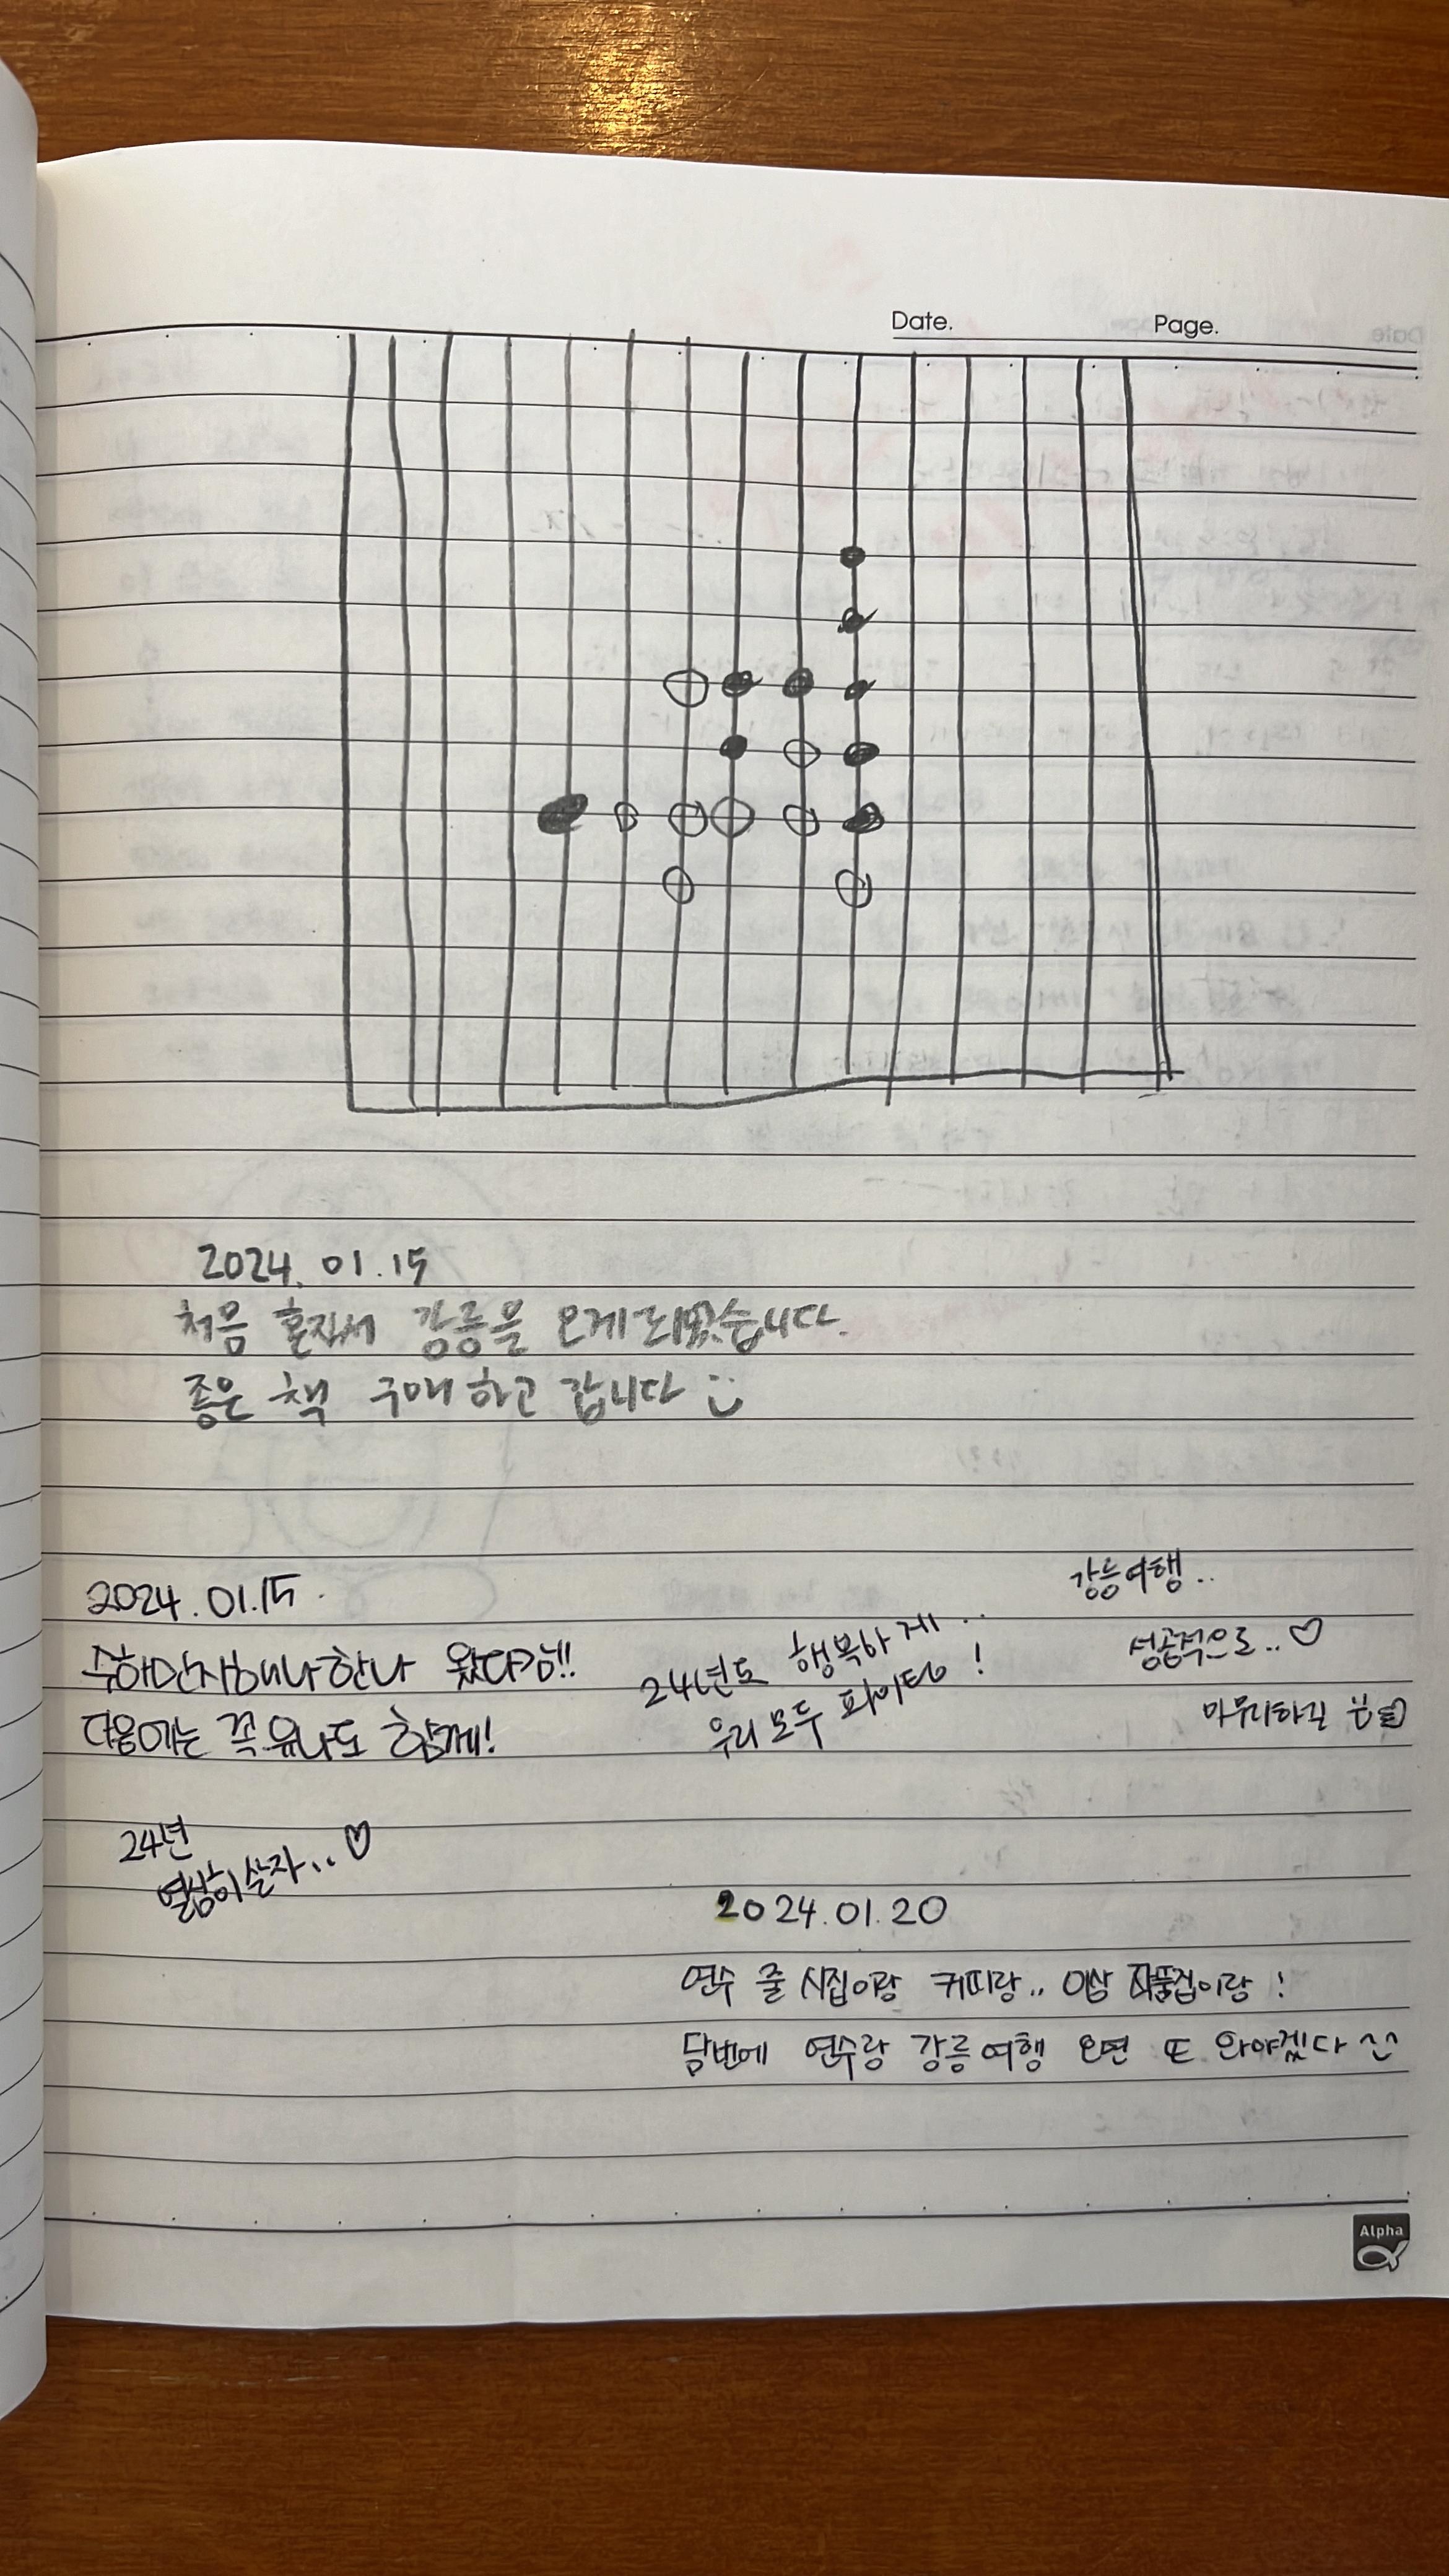 Date. Page.
2024. 01. 15
처음 혼자서 강릉을 오게되었습니다.
좋은 책 구매하고 갑니다
2024. 01. 15.
왔다감!!!
다음에는 꼭 유나도 함께!
24년도 행복하게..
우리 모두 파이팅!
강릉여행..
성공적으로..♡
마무리하길
24년
열심히 살자..♡
2024.01.20
연수 줄 시집이랑 커피랑.. 이상 작품집이랑!
담번에 연수랑 강릉여행 오면 또 와야겠다 ^^
Alpha